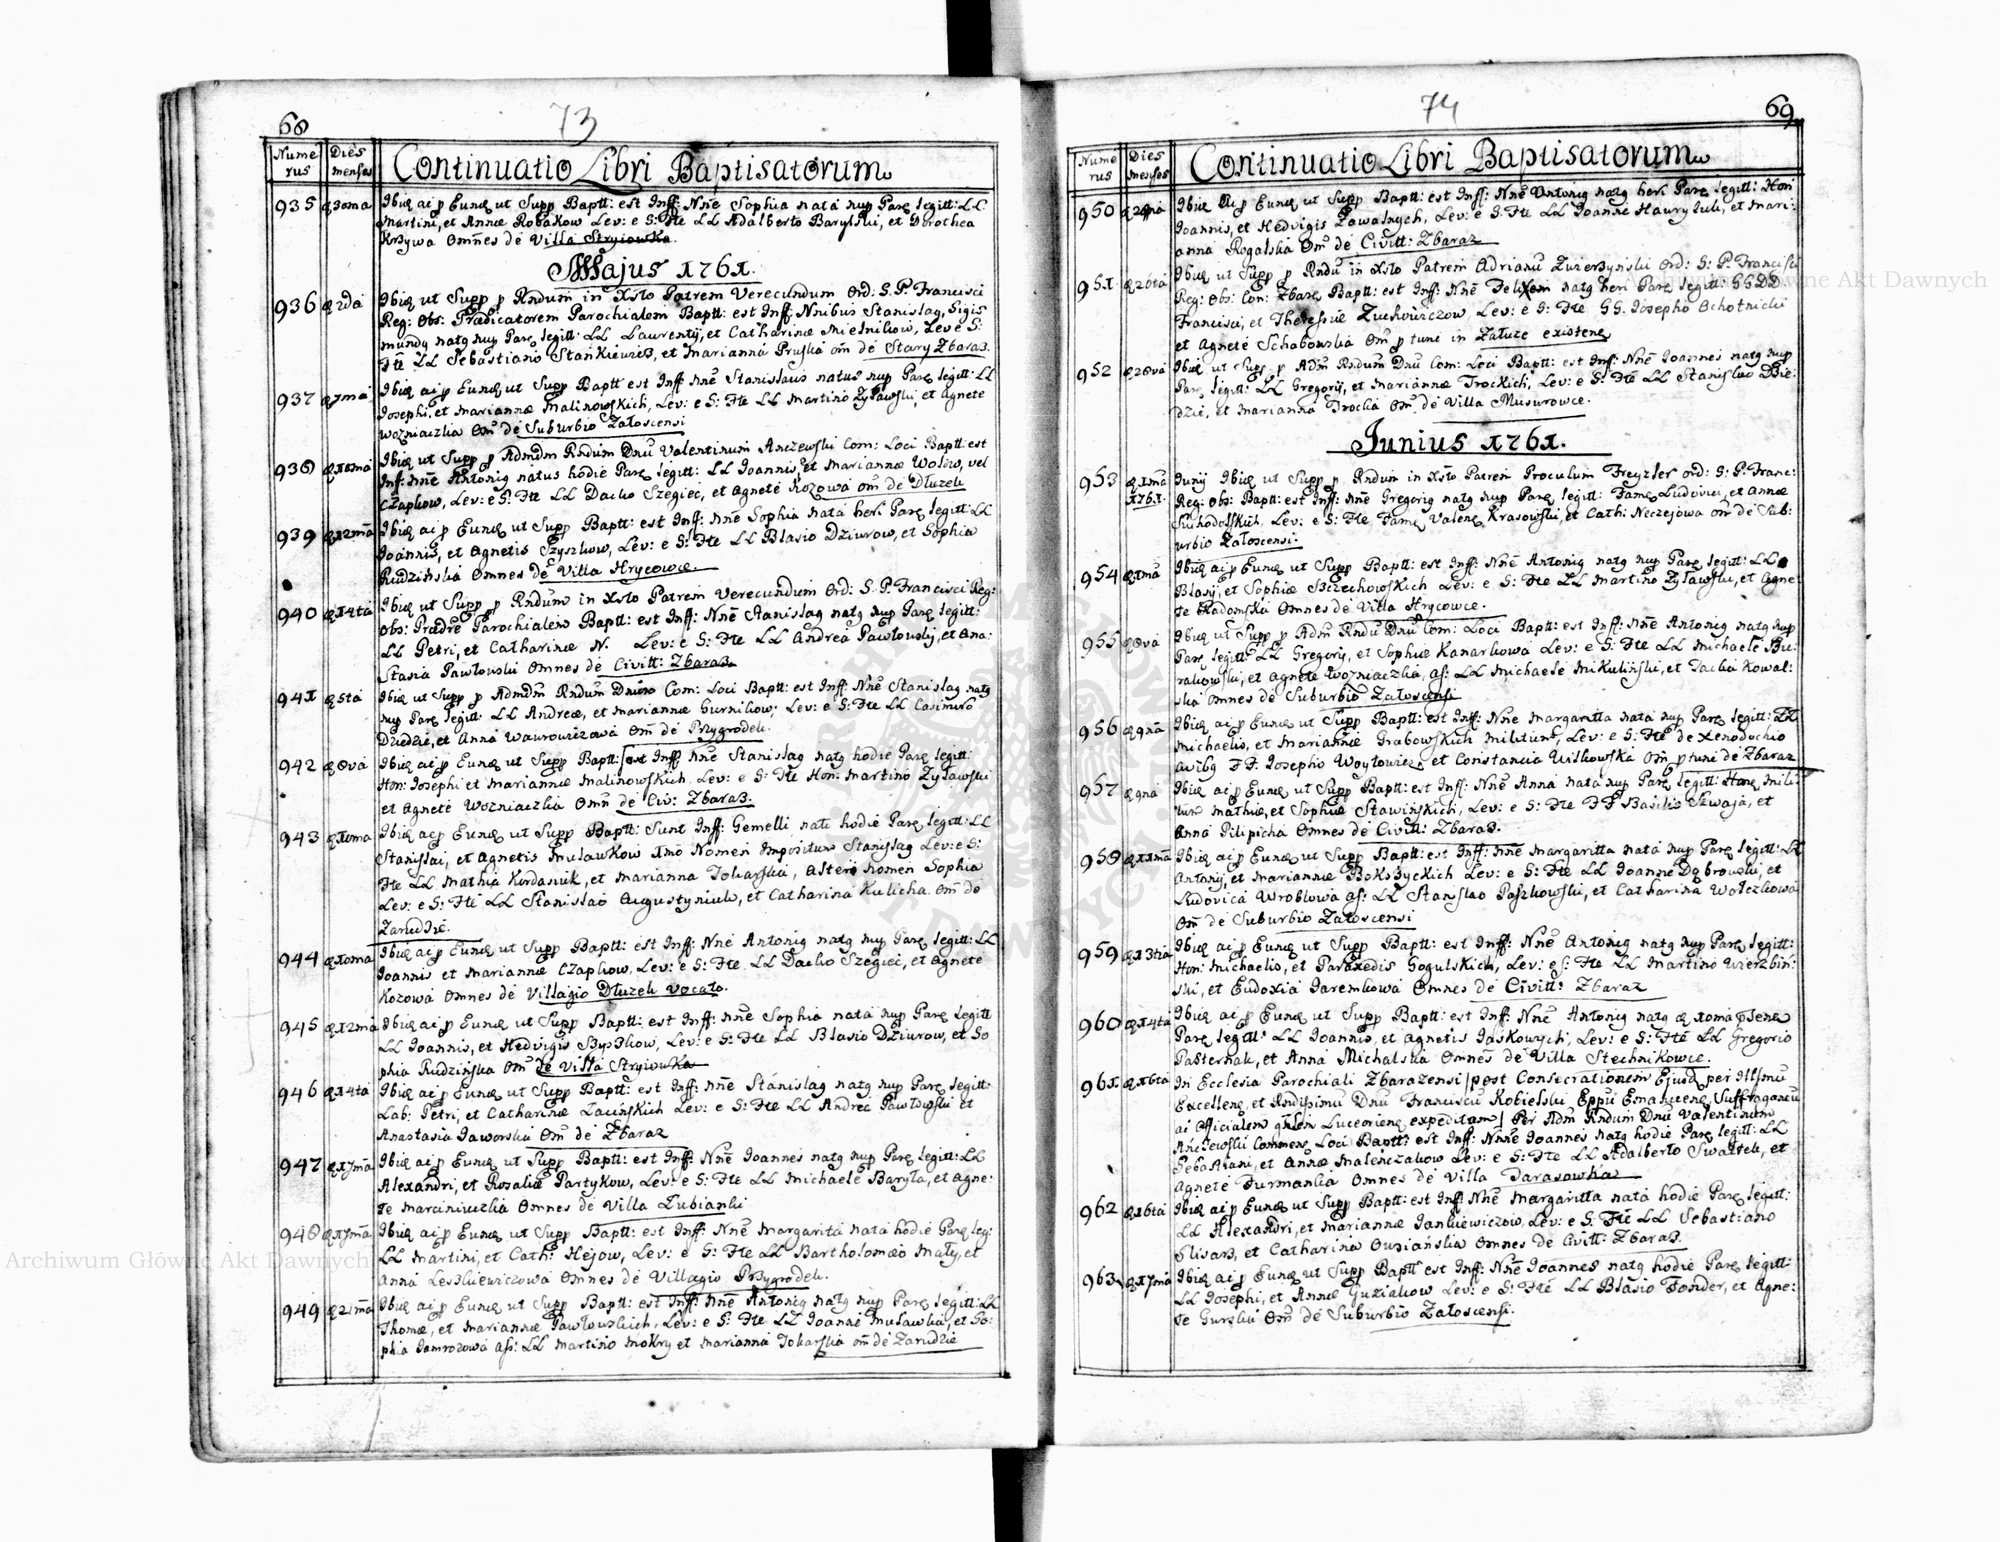 68
73
Nume
rus
Dies
menses
Continuatio Libri Baptisatorum
935 30ma Ibid ai p Eund ut Supp Baptt: est Inff: Nne Sophia nata nup Pare legitt: LL
Martini, et Annæ Robakow Lev: e S: Fte LL Adalberto Barylski, et Dorothea
Krzywa Omnes de Villa Stryiowka.
Majus 1761.
936 2da Ibid ut Supp p Rndum in Xsto Patrem Verecundum Ord: S. P. Francisci
Reg: Obs: Prædicatorem Parochialem Baptt: est Inff: Nnibus Stanislaq, Sigis
mundq natq nup Pare legitt: LL Laurentij, et Catharinæ Mielnikow, Lev: e S:
Fte LL Sebastiano Stankiewicz, et Marianna Pruska om de Stary Zbaraz.
937 7ma Ibid ai p Eund ut Supp Baptt est Inff: Nne Stanislaus natus nup Pare legitt: LL
Josephi, et Mariannæ Malinowskich, Lev: e S: Fte LL Martino Zyławski, et Agnete
Wozniaczka Om de Suburbio Załoscensi
938 10ma Ibid ut Supp p Admdm Rndum Dnu Valentinum Anczewski Com: Loci Baptt: est
Inff: Nne Antoniq natus hodie Pare legitt: LL Joannis, et Mariannæ Wolow, vel
Czapkow, Lev: e S: Fte LL Dacko Szegiec, et Agnete Kozowa om de Dłuzek
939 12ma Ibid ai p Eund ut Supp Baptt: est Inff: Nne Sophia nata heri Pare legitt: LL
Joannis, et Agnetis Szyszkow, Lev: e S: Fte LL Blasio Dziurow, et Sophia
Rudzinska Omnes de Villa Hrycowce.
940 14ta Ibid ut Supp p Rndum in Xsto Patrem Verecundum Ord: S. P. Francisci Reg:
Obs: Prædre Parochialem Baptt: est Inff: Nne Stanislaq natq nup Pare legitt:
LL Petri, et Catharinæ N. Lev: e S: Fte LL Andrea Pawłowskj, et Ana:
Stasia Pawłowski Omnes de Civitt: Zbaraz.
941 5ta Ibid ut Supp p Admdm Rndum Dnum Com: Loci Baptt: est Inff: Nne Stanislaq natq
nup Pare legitt: LL Andreæ, et Mariannæ Gurnikow, Lev: e S: Fte LL Casimiro
Dziedzic, et Anna Waurowizowa Om de Przygrodek.
942 8va Ibid ai p Eund ut Supp Baptt: est Inff: Nne Stanislaq natq hodie Pare legitt:
Hon: Josephi et Mariannæ Malinowskich, Lev: e S: Fte Hon: Martino Zyławski
et Agnete Wozniaczka Omn de Civ: Zbaraz.
943 10ma Ibid ai p Eund ut Supp Baptt: Sunt Inff: Gemelli nati hodie Pare legitt: LL
Stanislai, et Agnetis Muławkow 1mo Nomen Impositum Stanislaq Lev: e S:
Fte LL Mathia Kordasiuk, et Marianna Tokarska, Alteri Nomen Sophia
Lev: e S: Fte LL Stanislao Augustyniuk, et Catharina Kulicha. Om de
Zarudzie.
944 10ma Ibid ai p Eund ut Supp Baptt: est Inff: Nne Antoniq natq nup Pare legitt: LL
Joannis et Mariannæ Czapkow, Lev: e S: Fte LL Dacko Szegiec, et Agnete
Kozowa Omnes de Villagio Dłuzek vocato.
945 12ma Ibid ai p Eund ut Supp Baptt: est Inff: Nne Sophia nata nup Pare legitt
LL Joannis, et Hedvigis Szyszkow, Lev: e S: Fte LL Blasio Dziurow, et So
phia Rudzinska Om de Villa Stryiowka
946 14ta Ibid ai p Eund ut Supp Baptt: est Inff: Nne Stanislaq natq nup Pare legitt:
Lab: Petri, et Catharinæ Lacinskich Lev: e S: Fte LL Andrea Pawłowski et
Anastasia Jaworska Om de Zbaraz
947 17ma Ibid ai p Eund ut Supp Baptt: est Inff: Nne Joannes natq nup Pare legitt: LL
Alexandri, et Rosaliæ Partykow, Lev: e S: Fte LL Michaele Baryła, et Agne:
te Marciniuczka Omnes de Villa Lubianki
948 17ma Ibid ai p Eund ut Supp Baptt: est Inff: Nne Margarita nata hodie Pare leg:
LL Martini, et Cath: Hejow, Lev: e S: Fte LL Bartholomæo Mały, et
Anna Leszkiewiczowa Omnes de Villagio Przygrodek.
949 21ma Ibid ai p Eund ut Supp Baptt: est Inff: Nne Antoniq natq nup Pare legitt: LL
Thomæ, et Mariannæ Pawłowskich, Lev: e S: Fte LL Joanne Muławka, et So:
phia Jamrozowa ass: LL Martino Mokry et Marianna Tokarska om de Zarudzie
69
74
Nume
rus
Dies
menses
Continuatio Libri Baptisatorum
950 Ibid ai p Eund ut Supp Baptt: est Inff: Nne Antoniq natq heri Pare legitt: Hon
Joannis, et Hedvigis Zawalnych, Lev: e S: Fte LL Joanne Hauryluk, et Mari:
anna Rogalska Om de Civitt: Zbaraz
951 26ta Ibid ut Supp p Rndu in Xsto Patrem Adrianu Zwierzynski Ord: S: P. Francisci
Reg: Obs: Con: Zbare Baptt: est Inff: Nne Felixem natq heri Pare legitt: GGDD
Francisci, et Theresiæ Zuchowiczow, Lev: e S: Fte GG. Josepho Ochotnicki
et Agnete Schabowska Om p tunc in Załuze existene
952 28va Ibid ut Supp p Adm Rndum Dnu Com: Loci Baptt: est Inff: Nne Joannes natq nup
Pare legitt: LL Gregorij, et Mariannæ Trockich, Lev: e S: Fte LL Stanislao Dzie:
dzic, et Marianna Trocka Om de Villa Musurowce.
Junius 1761.
953 1ma 1761. Junij Ibid ut Supp p Rndum in Xsto Patrem Proculum Freyzler Ord: S: P. Franc:
Reg: Obs: Baptt: est Inff: Nne Gregoriq natq nup Pare legitt: Fame Ludovici, et Annæ
Suchodolskich, Lev: e S: Fte, Fame Valene Krasowski, et Cath: Neczejowa om de Sub:
urbio Załoscensi:
954 7ma Ibid ai p Eund ut Supp Baptt: est Inff: Nne Antoniq natq nup Pare legitt: LL
Blasij, et Sophiæ Szczechowskich Lev: e S: Fte LL Martino Zyławski, et Agne
te Radomska Omnes de Villa Hrycowce.
955 8va Ibid ut Supp p Adm Rndu Dnu Com: Loci Baptt: est Inff: Nne Antoniq natq nup
Pare legitt: LL Gregorij, et Sophiæ Kanarkowa Lev: e S: Fte LL Michaele Bu:
rakowski, et Agnete Wozniaczka, as: LL Michaele Mikulinski, et Tacka Kowal:
ska Omnes de Suburbio Załoscensi
956 9na Ibid ai p Eund ut Supp Baptt: est Inff: Nne Margaritta nata nup Pare legitt: LL
Michaelis, et Mariannæ Grabowskich militum, Lev: e S: Fte de Xenodochio
civibq FF. Josepho Woytowicz et Constancia Wilkowska Om p tunc de Zbaraz
957 9na Ibid ai p Eund ut Supp Baptt: est Inff: Nne Anna nata nup Pare legitt: Hone mili:
tum Mathiæ, et Sophiæ Stawinskich, Lev: e S: Fte FF Basilio Szwaja, et
Anna Pilipicha Omnes de Civitt: Zbaraz.
958 11ma Ibid ai p Eund ut Supp Baptt: est Inff: Nne Margaritta nata nup Pare legitt: LL
Antonij, et Mariannæ Bokszyckich Lev: e S: Fte LL Joanne Dąbrowski, et
Ludovica Wroblowa as: LL Stanislao Paszkowski, et Catharina Wołczkowa
Om de Suburbio Załoscensi
959 13tia Ibid ai p Eund ut Supp Baptt: est Inff: Nne Antoniq natq nup Pare legitt:
Hon: Michaelis, et Paraxedis Gogulskich, Lev: e S: Fte LL Martino Wierzbin:
ski, et Eudoxia Jaremkowa Omnes de Civitt: Zbaraz
960 14ta Ibid ai p Eund ut Supp Baptt: est Inff: Nne Antoniq natq 10ma psene
Pare legitt: LL Joannis, et Agnetis Jaskowych, Lev: e S: Fte LL Gregorio
Pasternak, et Anna Michalska Omnes de Villa Stechnikowce.
961 16ta In Ecclesia Parochiali Zbarazensi / post Consecrationem Ejusd per Illsmu
Excellene et Rndissimu Dnu Franciscu Kobielski Eppu Emaucene Suffraganeu
ac Officialem Luceoriene expeditam / Per Adm Rndum Dnu Valentinum
Anczewski Commene Loci Baptt: est Inff: Nne Joannes natq hodie Pare legitt: LL
Sebastiani, et Annæ Malenczakow Lev: e S: Fte LL Adalberto Swatek, et
Agnete Furmanka Omnes de Villa Tarasowka
962 16ta Ibid ai p Eund ut Supp Baptt: est Inff: Nne Margaritta nata hodie Pare legitt:
LL Alexandri, et Mariannæ Jankiewiczow, Lev: e S: Fte LL Sebastiano
Elisarz, et Catharina Owsianska Omnes de Civitt: Zbaraz.
963 17ma Ibid ai p Eund ut Supp Baptt est Inff: Nne Joannes natq hodie Pare legitt:
LL Josephi, et Annæ Guziakow Lev: e S: Fte LL Blasio Fonder, et Agne:
te Gurska Om de Suburbio Załoscensi.
Archiwum Główne Akt Dawnych